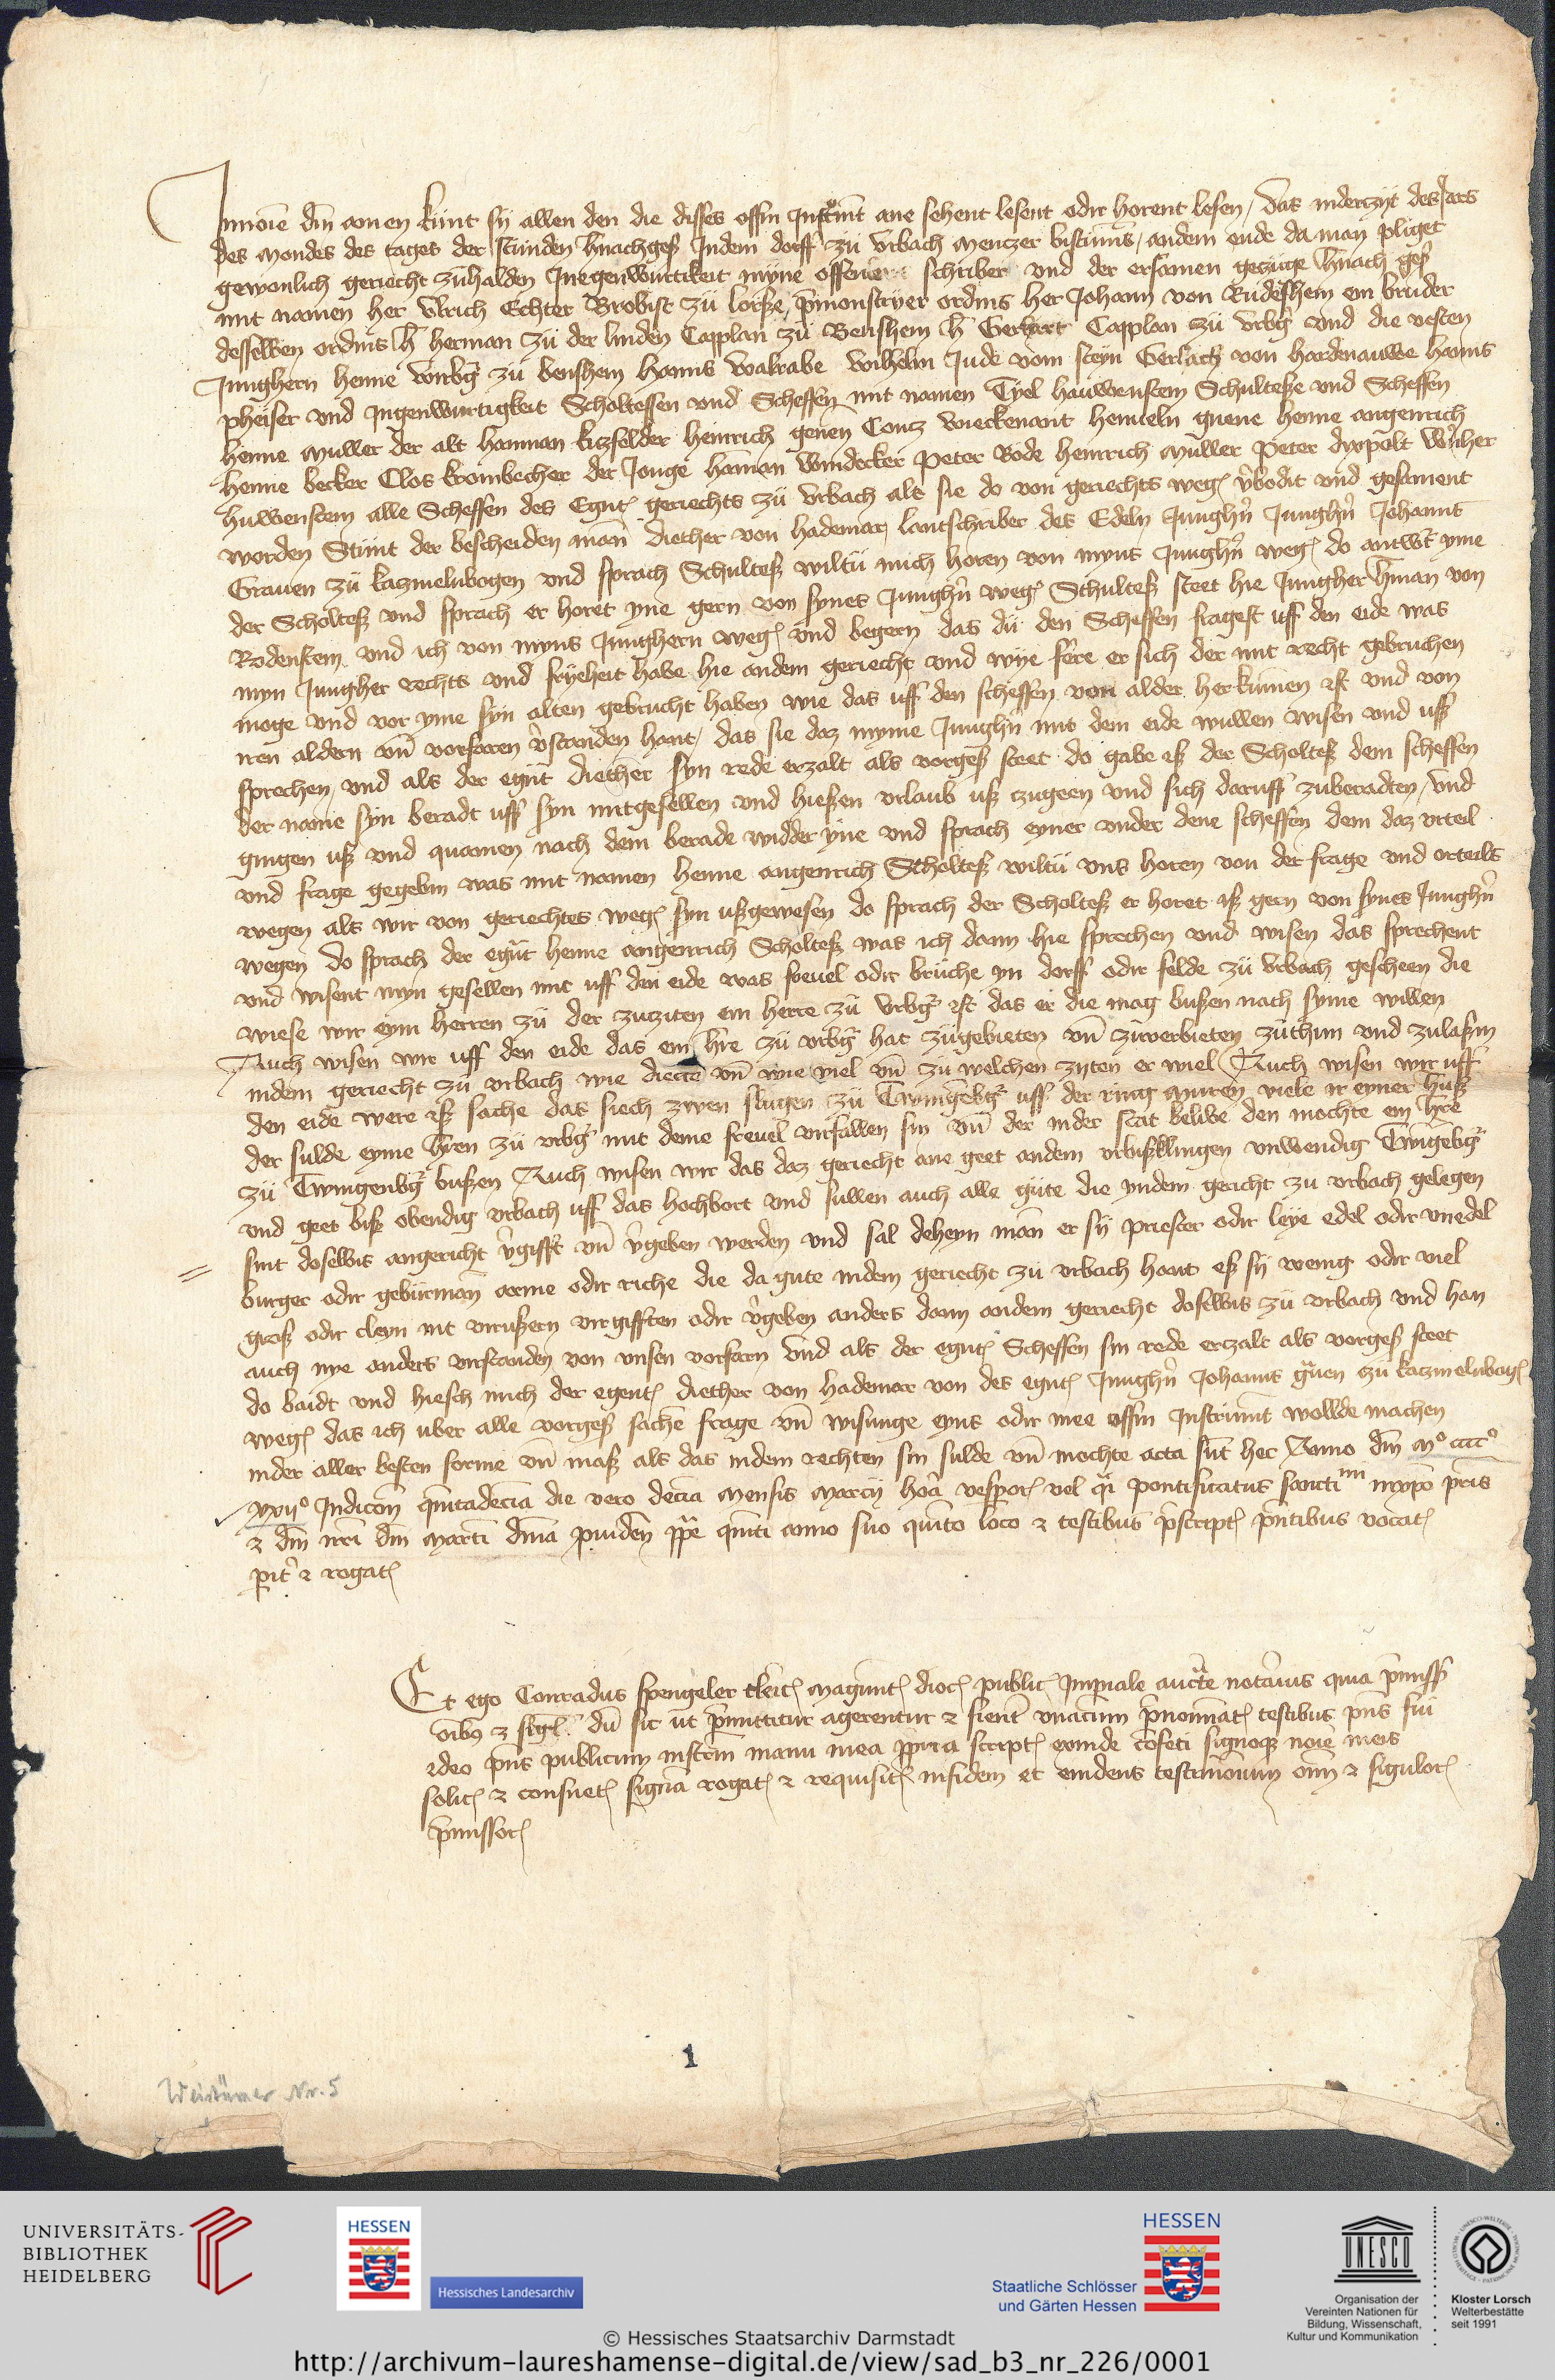 dm amen kunt sy allen den die disses offin Instrumt ane sehent lesent odir horent lesen / das inderczyt des Jars
des mondes des tages der stunden hnachgeß Indem dorff zu Urbach mentzer bistums / andem ende da man pliget
gewonlich geriecht zuhalden Inegenwurtikeit myne offener schriber und der ersamen geczuge hnach geß
mit namen her Ulrich Echter Brobist zu lorße, ordins her Johann von Rudeßhem ein bruder
desselben ordins h herman zu der linden Capplan zu Benshem h Gerhart Capplan zu urbg und die vesten
Junghern henne zu benshem hanns walrabe wilhelm Jude vom steyn Gerlach von hardenauwe hanns
pheiser und Ingenwurtigkeit Scholtessen und Scheffen mit namen Tyel hauwenstein Schulteße und Scheffen
henne muller der alt hanman heinrich Contz henne angenrich
henne becker Clos krombecher der Jonge haman windecker Peter Bode heinrich muller Peter
huwenstein alle Scheffen des Egnt geriechts zu Urbach als sie do von geriechts weg vbodit und gesament
worden Stunt der bescheiden man diether von hademar lantschriber des Edeln Junghn Junghn Johannt
Graven zu kaczinelnbogen und sprach Schulteß wiltu mich horen von myns Junghn weg do antwt yme
der Scholteß und sprach er horet yne gern von synes Junghn weg Schulteß steet hie Jungher hman von
Rodenstein und ich von myns Junghern weg und begern das du den Scheffen fragest uff den eide was
myn Jungher rechts und fryeheit habe hie andem geriecht und wye fere er sich der mit recht gebruchen
moge und vor yme syn alten gebrucht haben wie das uff den scheffen von alder herkumen ist und von
iren aldern un vorfaren vstanden hant, das sie daz myme Junghn mit dem eide wullen wisen und uß
sprechen, und als der egnt diether syn rede erzalt als vorgeß steet do gabe eß der Scholteß dem scheffen
der name syn beradt uff syn mitgesellen und hießen urlaub uß czugeen und sich daruff zuberadten, und
gingen uß und quamen nach dem berade widder yne und sprach eyner under dene scheffen dem daz urteil
und frage gegebin was mit namen henne angenrich Scholteß wiltu uns horen von der frage und orteils
wegen als wir von geriechtes weg syn ußgewesen do sprach der Scholteß er horet iß gern von synes Junghn
wegen do sprach der egnt henne angenrich Scholteß was ich dann hie sprechen und wisen das sprechent
und wisent myn gesellen mit uff den eide was frevel odir bruche yn dorff odir felde zu Urbach gescheen die
wiese wir eym herren zu der zuziten ein herre zu Urbg ist das er die mag bußen nach syme willen
Auch wisen wir uff den eide das ein hre zu urbg hat zugebieten un zuverbieten zuthun und zulaßin
indem geriecht zu urbach wie dicte un wie viel un zu welchen zyten er wiel Auch wisen wir uff
den eide were iß sache das siech zwen slugen zu Twingebg uff der ring muren viele ir eyner huß
der sulde eyme hren zu urbg mit deme frevel virfallen sin un der inder stat belibe den mochte ein hre
zu Twingenbg bußen Auch wisen wir das daz geriecht ane geet andem unwendig Twingebg
und geet biß obendig urbach uff das hochbort und sullen auch alle gute die yndem gericht zu urbach gelegen
sint doselbis angericht vgifft un vgeben werden und sal deheyn man er sy priester odir leye edel odir unedel
burger odir geburman arme odir riche die da gute indem geriecht zu urbach hant eß sy wenig odir viel
groß odir cleyn nit virußern virgifften odir vgeben anders dann andem geriecht doselbis zu urbach und han
auch nye anders virstanden von unsen vorfarn Und als der egnt Scheffen sin rede erzalt als vorgeß steet
do baidt und hiesch mich der egent diether von hademar von des egnt Junghn Johanns gven zu katzinelnbog
weg das ich uber alle vorgeß sache frage un wisunge eyns odir mee offin Instrumt wollde machen
inder aller besten forme un maß als das indem rechten sin sulde un mochte acta sut hec Anno dm mo cccco
xxiio Indicom qintadecia die vero decia mensis marcij hora vespor vel qi pontificatus sancti imi inxpo pris
z dm nri dm marti dina pviden ppe qinti anno suo quito loco z testibus pscript pntibus vocat
pit z rogat
Et ego Conradus spengeler cleic magunt dioc public Imperiale aucte notarius quia pmiss
oibus z sigl du sic ut pmittitur agerentur z fient unacum pnominat testibus pns fui
ideo pns publicum instrm manu mea ppria script exinde cofeci signoqz noie meis
solit z consuet signa rogat z requisit infidem et evidens testimonium oim z singulor
pmissor
1
Weistümer Nr. 5
UNIVERSITÄTS-
BIBLIOTHEK
HEIDELBERG
HESSEN
Hessisches Landesarchiv
HESSEN
Staatliche Schlösser
und Gärten Hessen
UNESCO
Organisation der
Vereinten Nationen für
Bildung, Wissenschaft,
Kultur und Kommunikation
Kloster Lorsch
Welterbestätte
seit 1991
© Hessisches Staatsarchiv Darmstadt
http://archivum-laureshamense-digital.de/view/sad_b3_nr_226/0001